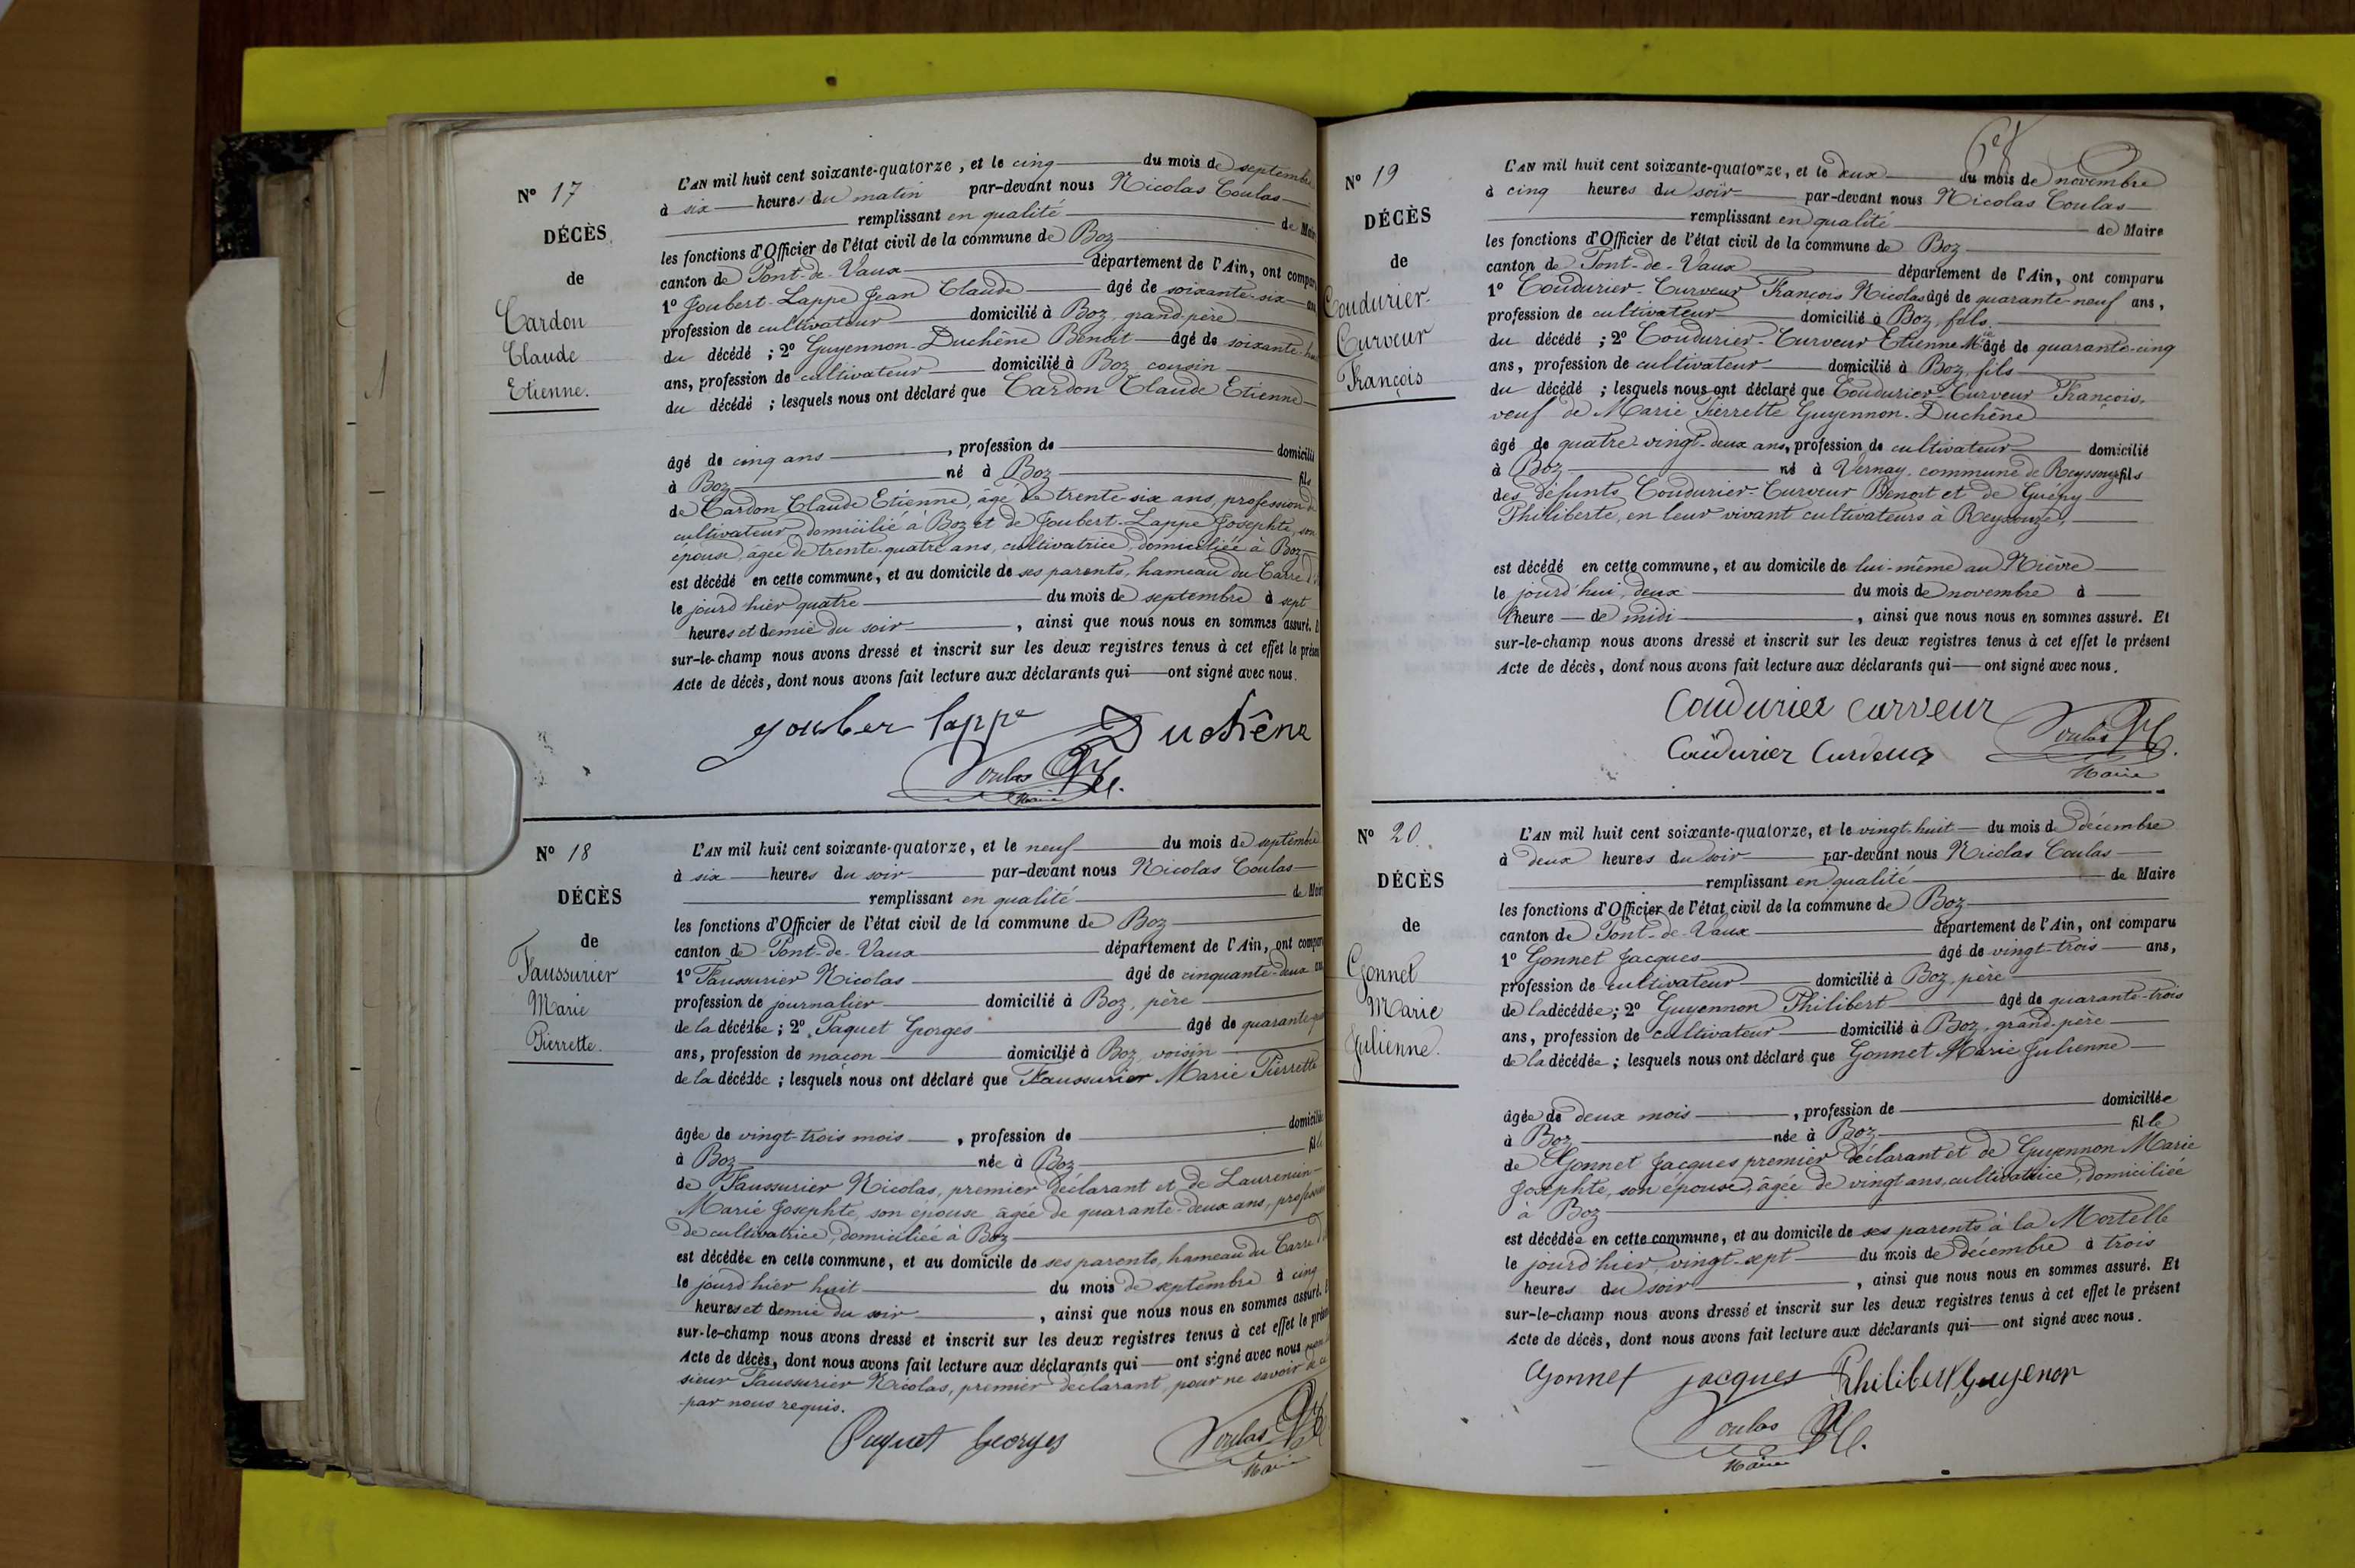 N° 17
DÉCÈS
de
Cardon
Claude
Etienne.
L'AN mil huit cent soixante-quatorze, et le cinq du mois de septembre
à six heures du matin par-devant nous Nicolas Coulas
remplissant en qualité de Maire
les fonctions d'Officier de l'état civil de la commune de Boz
canton de Pont-de-Vaux département de l'Ain, ont compar
1° Joubert-Lappe Jean Claude âgé de soixante-six ans
profession de cultivateur domicilié à Boz, grand-père
du décédé ; 2° Guyennon-Duchêne Benoit âgé de soixante-hu
ans, profession de cultivateur domicilié à Boz, cousin
du décédé ; lesquels nous ont déclaré que Cardon Claude Etienne
âgé de cinq ans , profession de domicilié
à Boz né à Boz fils
de Cardon Claude Etienne, âgé de trente-six ans, profession de
cultivateur, domicilié à Boz et de Joubert-Lappe Josephte, son
épouse, âgée de trente-quatre ans, cultivatrice, domiciliée à Boz
est décédé en cette commune, et au domicile de ses parents, hameau du Carre
le jourd'hier quatre du mois de septembre à sept
heures et demie du soir , ainsi que nous nous en sommes assuré.
sur-le-champ nous avons dressé et inscrit sur les deux registres tenus à cet effet le présen
Acte de décès, dont nous avons fait lecture aux déclarants qui ont signé avec nous.
Jouber lappe Duchêne
Coulas
Maire
N° 18
DÉCÈS
de
Faussurier
Marie
Pierrette.
L'AN mil huit cent soixante-quatorze, et le neuf du mois de septembre
à six heures du soir par-devant nous Nicolas Coulas
remplissant en qualité de Maire
les fonctions d'Officier de l'état civil de la commune de Boz
canton de Pont-de-Vaux département de l'Ain, ont compar
1° Faussurier Nicolas âgé de cinquante-deux ans
profession de journalier domicilié à Boz, père
de la décédée ; 2° Paquet Georges âgé de quarante
ans, profession de maçon domicilié à Boz, voisin
de la décédée ; lesquels nous ont déclaré que Faussurier Marie Pierrette
âgée de vingt-trois mois , profession de domiciliée
à Boz née à Boz fille
de Faussurier Nicolas, premier déclarant et de Laurencin
Marie Josephte, son épouse, âgée de quarante-deux ans, profession
de cultivatrice, domiciliée à Boz
est décédée en cette commune, et au domicile de ses parents, hameau du Carre
le jourd'hier huit du mois de septembre à cinq
heures et demie du soir , ainsi que nous nous en sommes assuré.
sur-le-champ nous avons dressé et inscrit sur les deux registres tenus à cet effet le présen
Acte de décès, dont nous avons fait lecture aux déclarants qui ont signé avec nous
sieur Faussurier Nicolas, premier déclarant, pour ne savoir de ce
par nous requis.
Paquet Georges Coulas
Maire
N° 19
DÉCÈS
de
Coudurier-
Curveur
François
L'AN mil huit cent soixante-quatorze, et le deux du mois de novembre
à cinq heures du soir par-devant nous Nicolas Coulas
remplissant en qualité de Maire
les fonctions d'Officier de l'état civil de la commune de Boz
canton de Pont-de-Vaux département de l'Ain, ont comparu
1° Coudurier-Curveur François Nicolas âgé de quarante-neuf ans,
profession de cultivateur domicilié à Boz, fils
du décédé ; 2° Coudurier-Curveur Etienne Mie âgé de quarante-cinq
ans, profession de cultivateur domicilié à Boz, fils
du décédé ; lesquels nous ont déclaré que Coudurier-Curveur François,
veuf de Marie Pierrette Guyennon-Duchêne
âgé de quatre-vingt-deux ans, profession de cultivateur domicilié
à Boz né à Vernay, commune de Reyssouze fils
des défunts Coudurier-Curveur Benoit et de Guépy
Philiberte, en leur vivant cultivateurs à Reyssouze,
est décédé en cette commune, et au domicile de lui-même au Nièvre
le jourd'hui, deux du mois de novembre à
l'heure de midi , ainsi que nous nous en sommes assuré. Et
sur-le-champ nous avons dressé et inscrit sur les deux registres tenus à cet effet le présent
Acte de décès, dont nous avons fait lecture aux déclarants qui ont signé avec nous.
Coudurier curveur
Coulas
Coudurier
Maire
N° 20
DÉCÈS
de
Gonnet
Marie
Julienne.
L'AN mil huit cent soixante-quatorze, et le vingt-huit du mois de décembre
à deux heures du soir par-devant nous Nicolas Coulas
remplissant en qualité de Maire
les fonctions d'Officier de l'état civil de la commune de Boz
canton de Pont-de-Vaux département de l'Ain, ont comparu
1° Gonnet Jacques âgé de vingt-trois ans,
profession de cultivateur domicilié à Boz, père
de la décédée ; 2° Guyennon Philibert âgé de quarante-trois
ans, profession de cultivateur domicilié à Boz, grand-père
de la décédée ; lesquels nous ont déclaré que Gonnet Marie Julienne
âgée de deux mois , profession de domiciliée
à Boz née à Boz fille
de Gonnet Jacques premier déclarant et de Guyennon Marie
Josephte, son épouse, âgée de vingt ans, cultivatrice, domiciliée
à Boz
est décédée en cette commune, et au domicile de ses parents à la Mortelle
le jourd'hier, vingt-sept du mois de décembre à trois
heures du soir , ainsi que nous nous en sommes assuré. Et
sur-le-champ nous avons dressé et inscrit sur les deux registres tenus à cet effet le présent
Acte de décès, dont nous avons fait lecture aux déclarants qui ont signé avec nous.
Gonnet jacques Philibert Guyenon
Coulas
Maire